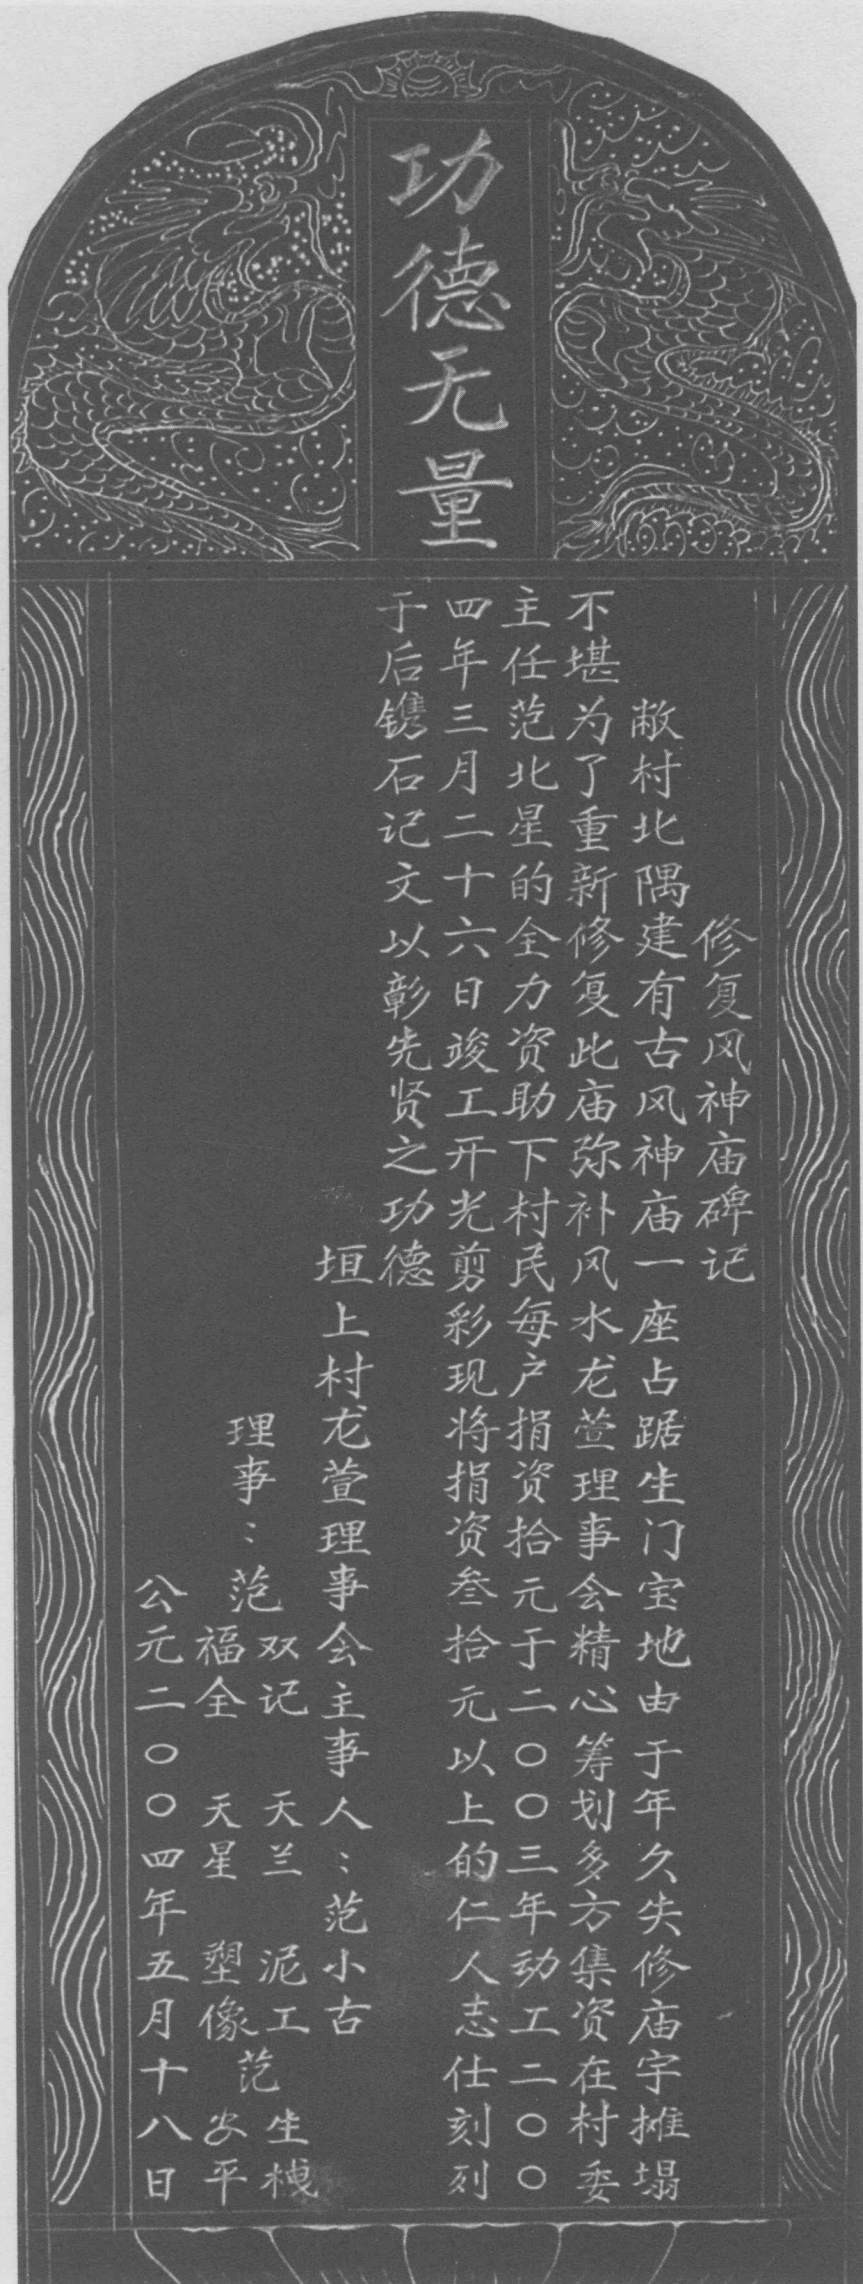 功德无量
修复风神庙碑记
敝村北隅建有古风神庙一座占踞生门宝地由于年久失修庙宇摊塌
不堪为了重新修复此庙弥补风水龙萱理事会精心筹划多方集资在村委
主任范北星的全力资助下村民每户捐资拾元于二〇〇三年动工二〇〇
四年三月二十六日竣工开光剪彩现将捐资叁拾元以上的仁人志仕刻列
于后镌石记文以彰先贤之功德
垣上村龙萱理事会主事人：范小古
理事：范
双记 天兰 泥工 生
福全 天星 塑像 安平
范
公元二〇〇四年五月十八日